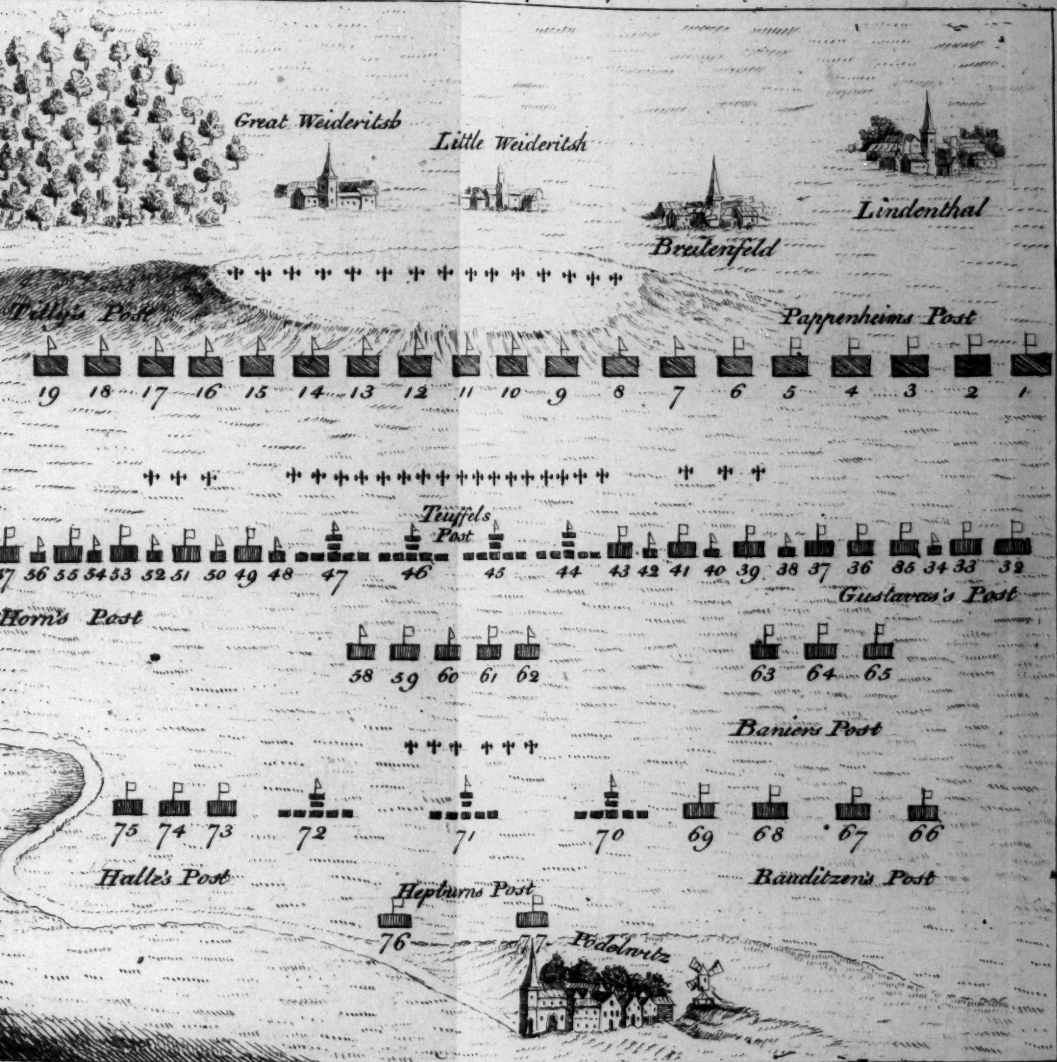 Great Weideritsh
Little Weideritsh
Lindenthal
Breitenfeld
Tilly's Post
Pappenheims Post
19 18 17 16 15 14 13 12 11 10 9 8 7 6 5 4 3 2 1
Teuffels
Post
57 56 55 54 53 52 51 50 49 48 47 46 45 44 43 42 41 40 39 38 37 36 35 34 33 32
Gustavus's Post
Horn's Post
58 59 60 61 62 63 64 65
Baniers Post
75 74 73 72 71 70 69 68 67 66
Halle's Post
Hepburns Post
Bauditzen's Post
76 77
Podelwitz